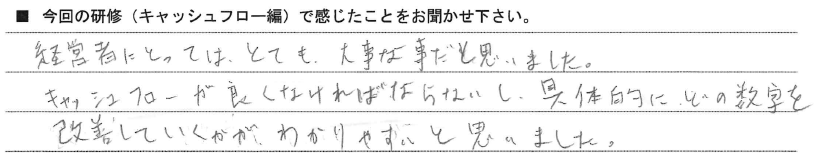 ■ 今回の研修（キャッシュフロー編）で感じたことをお聞かせ下さい。
経営者にとっては、とても、大事な事だと思いました。
キャッシュフローが良くなければならないし、具体的に、どの数字を
改善していくかが、わかりやすいと思いました。